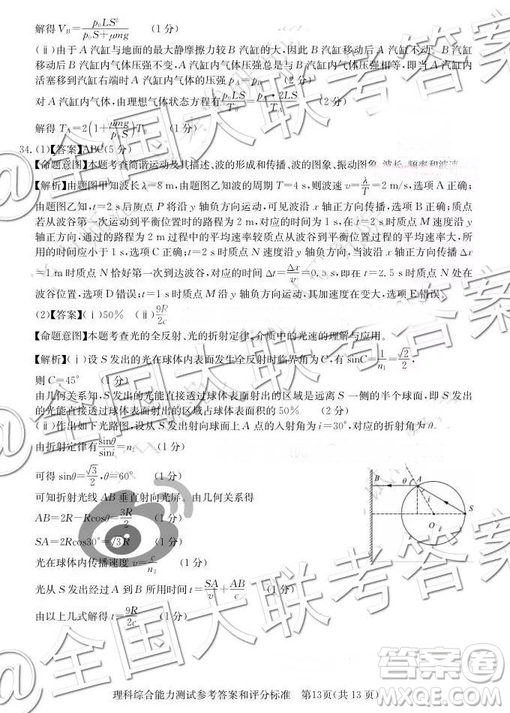 解得V_B=p₀LS²/(p₀S+μmg) (1分)
(ⅱ)由于A汽缸与地面的最大静摩擦力较B汽缸的大，因此B汽缸移动后A汽缸不动，B汽缸移
动后B汽缸内气体压强不变，A汽缸内气体压强总是与B汽缸内气体压强相等，即当A汽缸内
活塞移到汽缸右端时A汽缸内气体的压强p_A=p_B (2分)
对A汽缸内气体，由理想气体状态方程有 p₀LS/T₀=p_A·2LS/T_A (2分)
解得T_A=2(1+μmg/p₀S)T₀ (1分)
34.(1)【答案】ABC(5分)
【命题意图】本题考查简谐运动及其描述、波的形成和传播、波的图象、振动图象、波长、频率和波速
【解析】由题图甲知波长λ=8 m，由题图乙知波的周期T=4 s，则波速v=λ/T=2 m/s，选项A正确；
由题图乙知，在t=2 s后质点P将沿y轴负方向运动，可见波沿x轴负方向传播，选项B正确；质点
若从波谷第一次运动到平衡位置时的路程为2 m，对应的时间为1 s，在t=2 s时质点M速度沿y
轴正方向，通过的路程为2 m过程中的平均速率较质点从波谷到平衡位置过程中的平均速率大，所
用的时间应小于1 s，选项C正确；由题意知，在t=2 s时质点N速度沿y轴负方向，当波沿x轴正方向传播
=1 m时质点N恰好第一次到达波谷，对应的时间为Δt=Δx/v=0.5 s，即t=2.5 s时质点N处在
波谷位置，选项D错误；t=1 s时质点M沿y轴负方向运动，其加速度不断增大，选项E错误。
(2)【答案】(ⅰ)50% (ⅱ)9R/2c
【命题意图】本题考查光的全反射、光的折射定律、介质中的光速的理解与应用。
【解析】(ⅰ)设S发出的光在球体内表面发生全反射时临界角为C，有sinC=1/n₁=√2/2，
则C=45° (1分)
由几何关系知，S发出的光能直接透过球体的光射出的区域是远离S一侧的半个球面，即S发出
的光能直接透过球面射出的区域占球体表面积的50% (2分)
(ⅱ)作出如下光路图，设从S发出经A射向光屏光线对应的A点的入射角为i=30°，对应的折射角为θ
由折射定律有sinθ/sini=n₂ (1分)
可得sinθ=√3/2，θ=60° (1分)
可知折射光线AB垂直射向光屏。由几何关系得
AB=2R-Rcosθ=3R/2 (1分)
SA=2Rcos30°=√3R (1分)
光在球体内传播速度v=c/n₂ (1分)
光从S发出经过A到B所用时间t=SA/v+AB/c (1分)
由以上几式解得t=9R/2c (1分)
B
A
θ
i
O
S
理科综合能力测试参考答案和评分标准 第13页(共13页)
@全国大联考答案